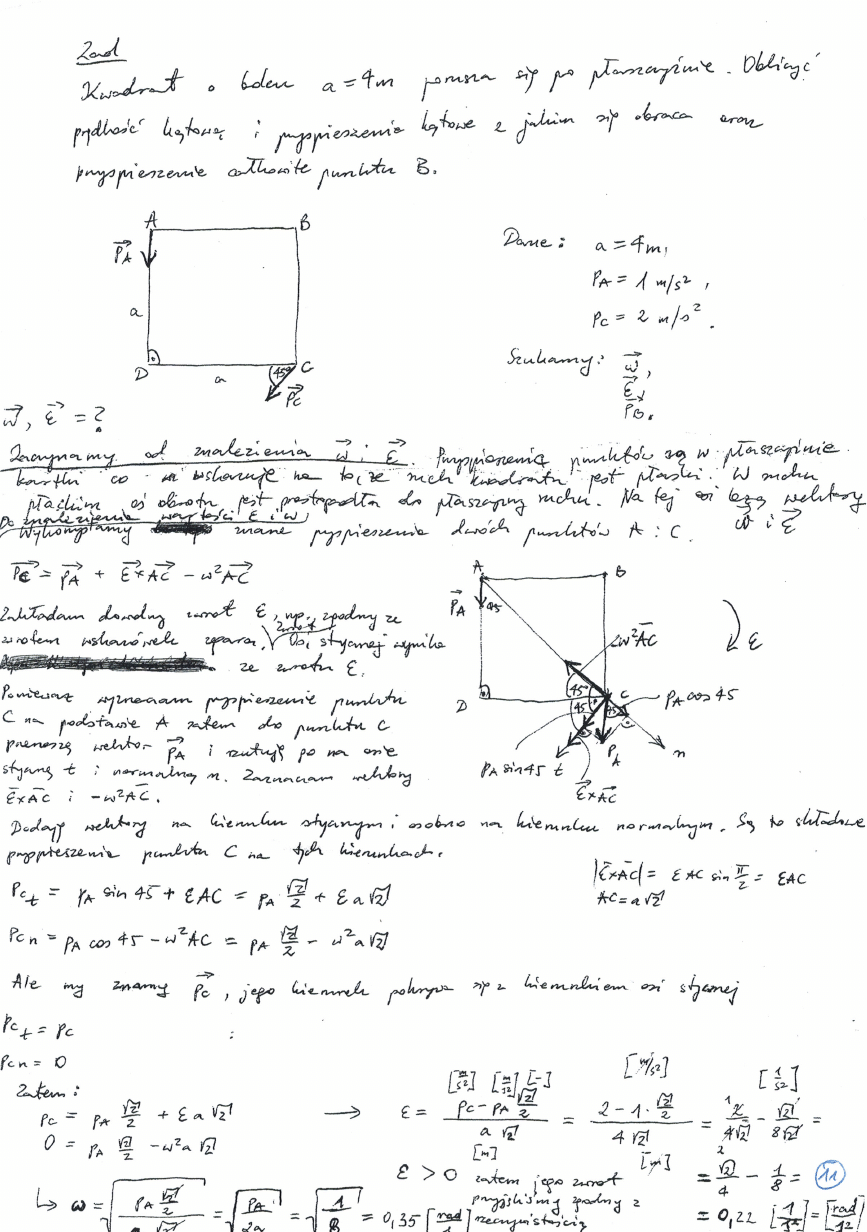 Zad
Kwadrat o boku a = 4m porusza się po płaszczyźnie. Obliczyć
prędkość kątową i przyspieszenie kątowe z jakim się obraca oraz
przyspieszenie całkowite punktu B.
A
B
P_A
a
D
a
45°
C
P_C
Dane: a = 4m,
P_A = 1 m/s²,
P_C = 2 m/s².
Szukamy: ω,
ε,
P_B.
ω, ε = ?
Zaczynamy od znalezienia ω i ε. Przyspieszenia punktów są w płaszczyźnie
kartki co wskazuje na to, że ruch kwadratu jest płaski. W ruchu
płaskim oś obrotu jest prostopadła do płaszczyzny ruchu. Na tej osi leżą wektory
ω i ε
Do znalezienia wartości ε i ω,
Wykorzystamy znane przyspieszenie dwóch punktów A i C.
P_C = P_A + ε×AC - ω²AC
Zakładam dowolny zwrot ε, np. zgodny ze
zwrotem wskazówek zegara. Zwrot Osi stycznej wynika
ze zwrotu ε.
Ponieważ wyznaczam przyspieszenie punktu
C na podstawie A zatem do punktu C
przenoszę wektor P_A i rzutuję go na osie
styczną t i normalną n. Zaznaczam wektory
ε×AC i -ω²AC.
A
B
P_A
45
ω²AC
ε
D
45°
C
P_A cos 45
45
45
P_A
n
P_A sin 45
t
ε×AC
Dodaję wektory na kierunku stycznym i osobno na kierunku normalnym. Są to składowe
przyspieszenia punktu C na tych kierunkach.
P_Ct = P_A sin 45 + ε AC = P_A √2/2 + ε a√2
|ε×AC| = ε AC sin π/2 = εAC
AC = a√2
P_Cn = P_A cos 45 - ω²AC = P_A √2/2 - ω²a√2
Ale my znamy P_C, jego kierunek pokrywa się z kierunkiem osi stycznej
P_Ct = P_C
:
P_Cn = 0
Zatem:
[m/s²] [m/s²] [-]
[m/s²]
[1/s²]
P_C = P_A √2/2 + ε a√2 → ε = (P_C - P_A √2/2)/(a√2) = (2 - 1·√2/2)/(4√2) = 2/(4√2) - √2/(8√2) =
[m]
[m]
0 = P_A √2/2 - ω²a√2
ε > 0 zatem jego zwrot
przyjęliśmy zgodny z
rzeczywistością
= √2/4 - 1/8 = 11
= 0,22 [1/s²] = [rad
↳ ω = √(P_A √2/2 / a√2) = √(P_A/2a) = √(1/8) = 0,35 [rad